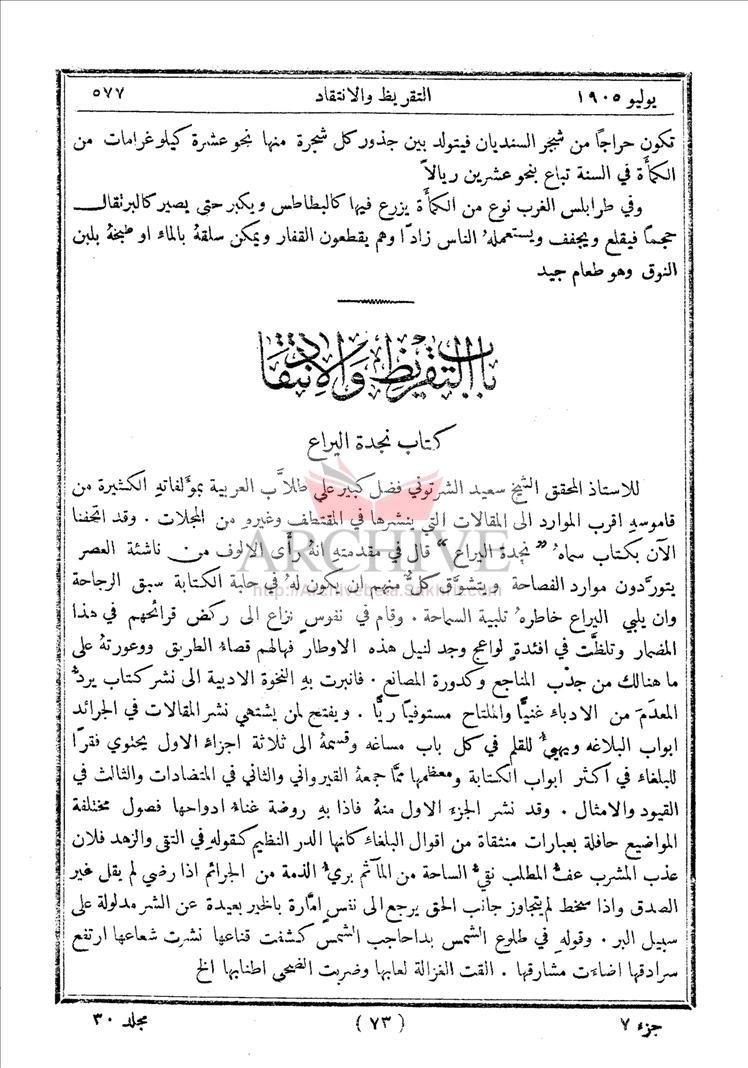 يوليو ١٩٠٥ التقريظ والانتقاد ٥٧٧
تكون حراجًا من شجر السنديان فيتولد بين جذور كل شجرة منها نحو عشرة كيلو غرامات من
الكمأة في السنة تباع بنحو عشرين ريالاً
وفي طرابلس الغرب نوع من الكمأة يزرع فيها كالبطاطس ويكبر حتى يصير كالبرتقال
حجمًا فيقلع ويجفف ويستعملهُ الناس زادًا وهم يقطعون القفار ويمكن سلقهُ بالماء او طبخهُ بلبن
النوق وهو طعام جيد
باب التقريظ والانتقاد
كتاب نجدة اليراع
للاستاذ المحقق الشيخ سعيد الشرتوني فضل كبير على طلاَّب العربية بمؤلفاتهِ الكثيرة من
قاموسهِ اقرب الموارد الى المقالات التي ينشرها في المقتطف وغيرهِ من المجلات . وقد اتحفنا
الآن بكتاب سماهُ "نجدة اليراع" قال في مقدمتهِ انهُ رأى الالوف من ناشئة العصر
يتورَّدون موارد الفصاحة ويتشوَّق كلٌّ منهم ان يكون لهُ في حلبة الكتابة سبق الرجاحة
وان يلبي اليراع خاطرهُ تلبية السماحة . وقام في نفوس نزاع الى ركض قرائحهم في هذا
المضمار وتلظَّت في افئدةٍ لواعج وجد لنيل هذه الاوطار فهالهم قصاءُ الطريق ووعورتهُ على
ما هنالك من جدْب المناجع وكدورة المصانع . فانبرت بهِ النخوة الادبية الى نشر كتاب يردُّ
المعدَم من الادباء غنيًّا والملتاح مستوفيًا ريًّا . ويفتح لمن يشتهي نشر المقالات في الجرائد
ابواب البلاغه ويهيئُ للقلم في كل باب مساغه وقسمهُ الى ثلاثة اجزاء الاول يحتوي فقرًا
للبلغاء في اكثر ابواب الكتابة ومعظمها ممَّا جمعهُ القيرواني والثاني في المتضادات والثالث في
القيود والامثال . وقد نشر الجزء الاول منهُ فاذا بهِ روضة غناءُ ادواحها فصول مختلفة
المواضيع حافلة بعبارات منتقاة من اقوال البلغاء كانها الدر النظيم كقولهِ في التقى والزهد فلان
عذب المشرب عفُّ المطلب نقيُّ الساحة من المآثم بريءُ الذمة من الجرائم اذا رضي لم يقل غير
الصدق واذا سخط لم يتجاوز جانب الحق يرجع الى نفس امَّارة بالخير بعيدة عن الشر مدلولة على
سبيل البر . وقولهِ في طلوع الشمس بدا حاجب الشمس كشفت قناعها نشرت شعاعها ارتفع
سرادقها اضاءت مشارقها . القت الغزالة لعابها وضربت الضحى اطنابها الخ
جزء ٧ (٧٣) مجلد ٣٠
ARCHIVE
http://Archivebeta.Sakhrit.com